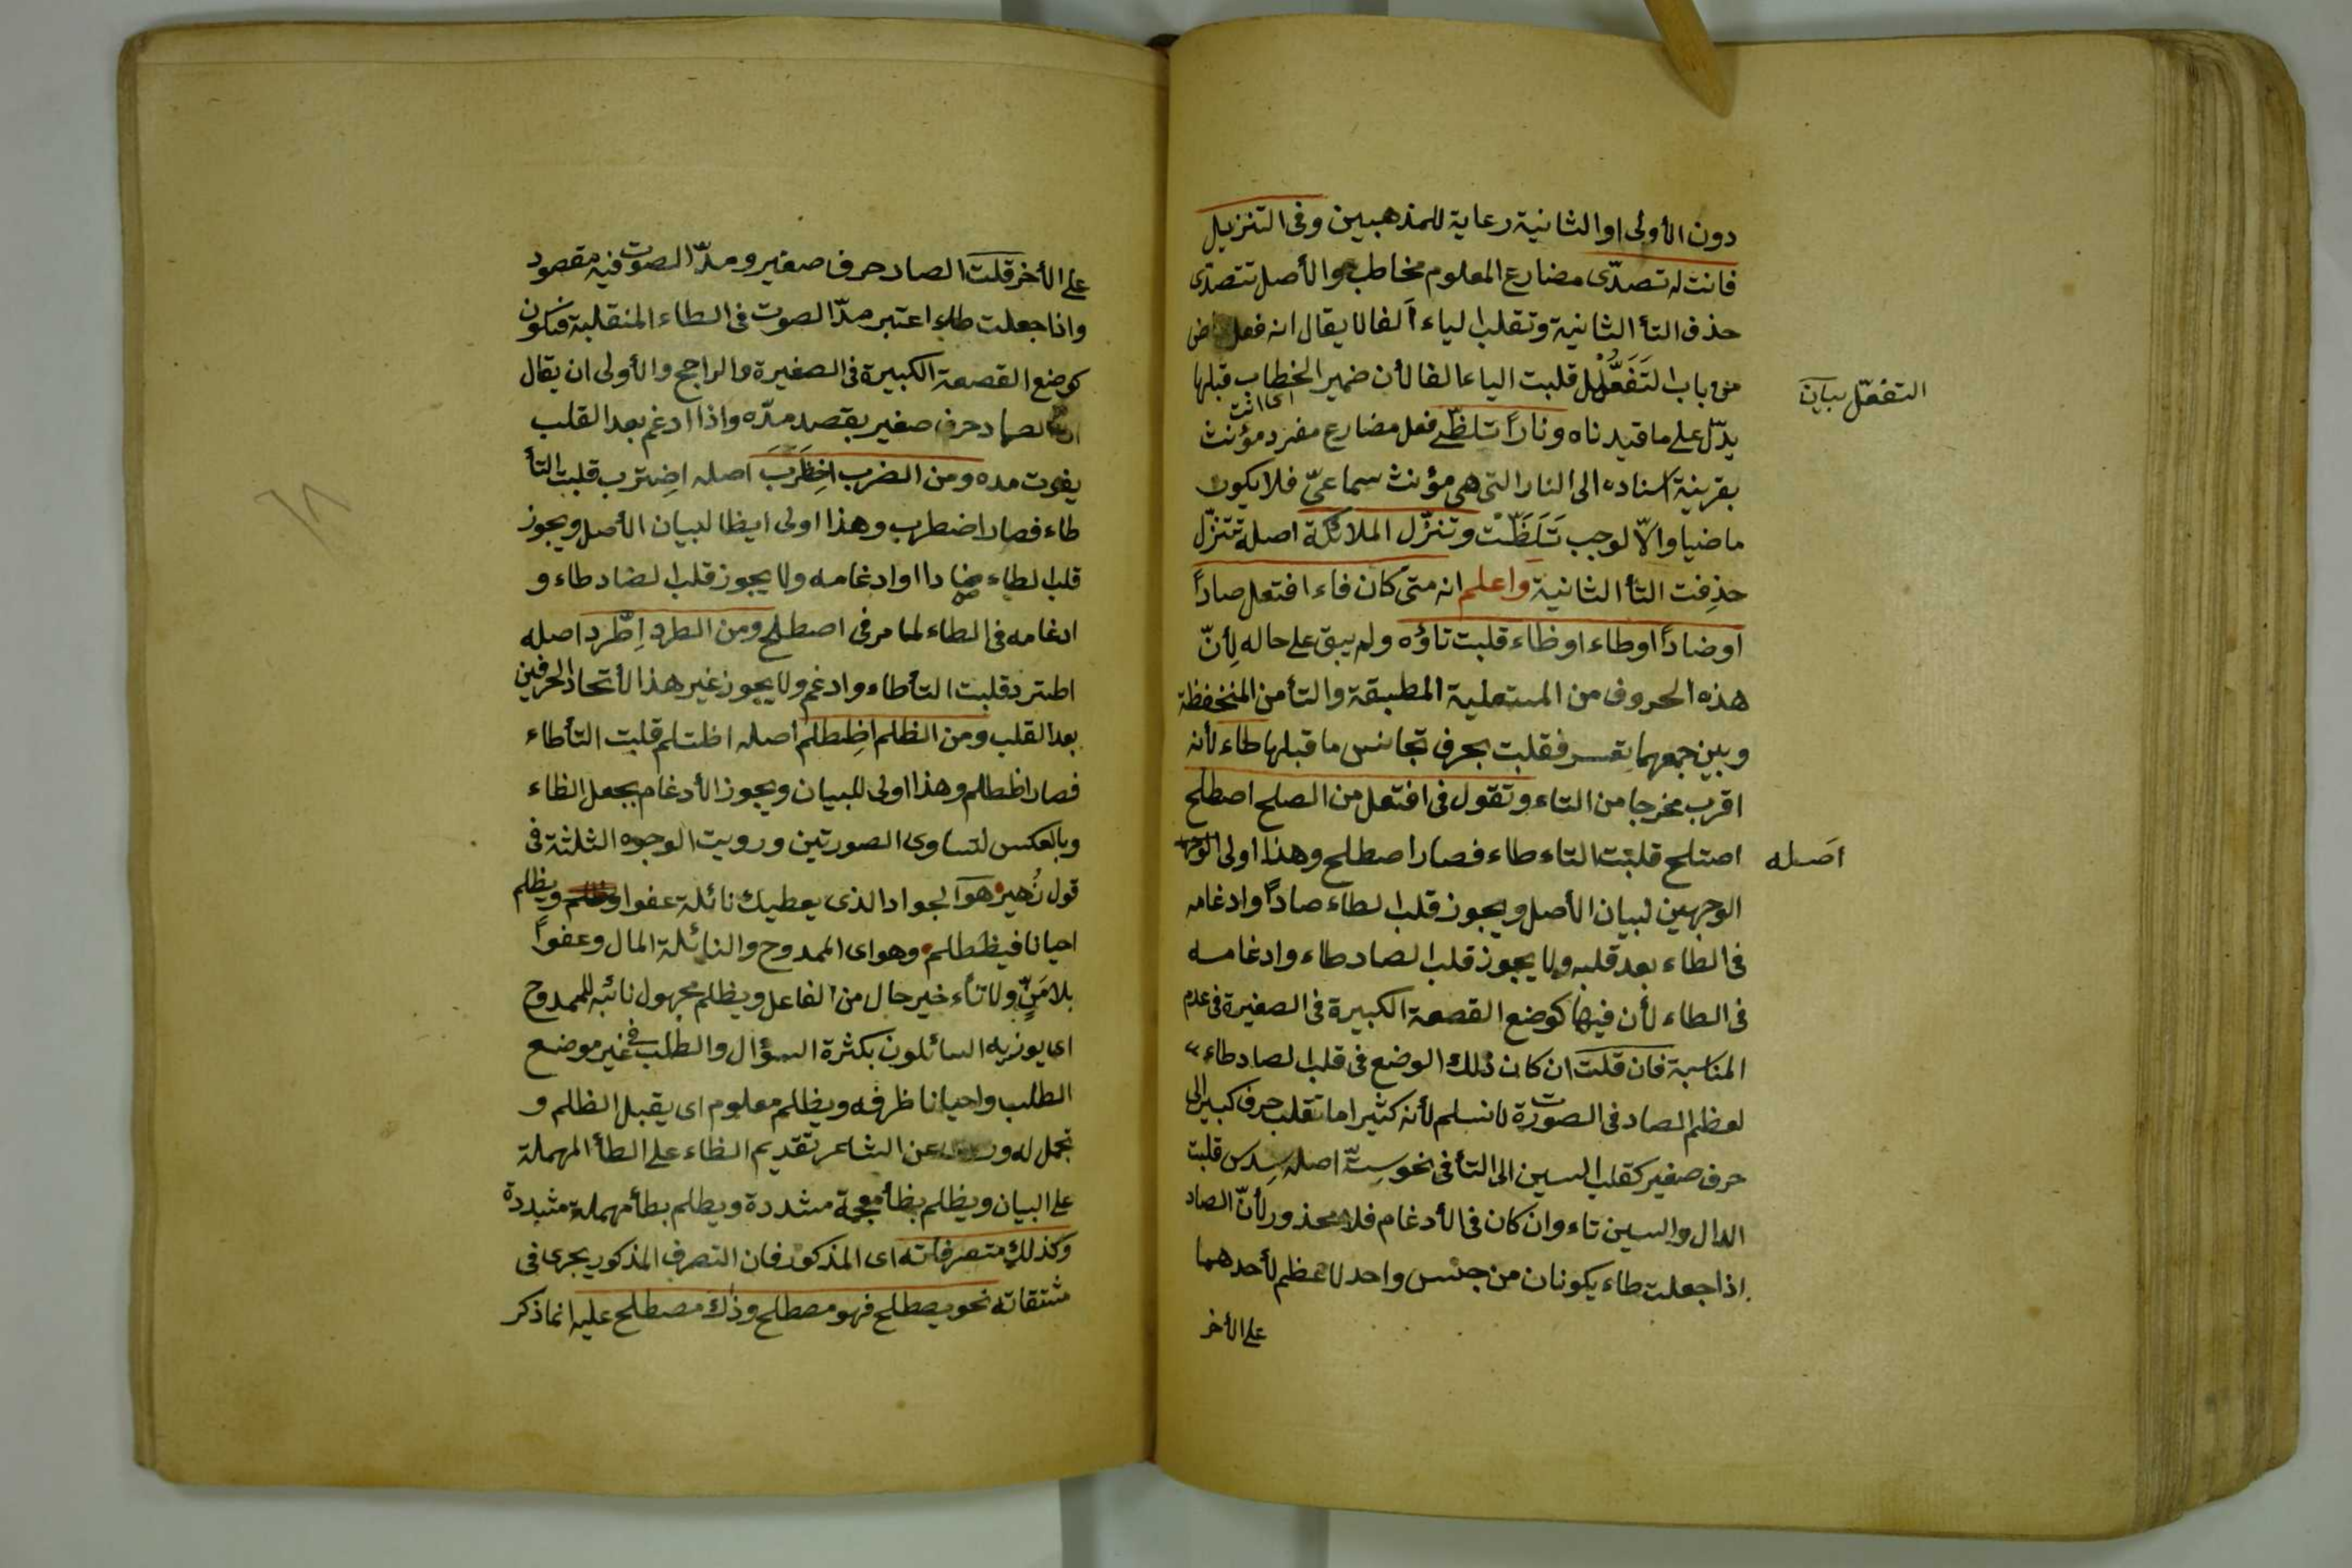 دون الأولى او الثانية رعاية للمذهبين وفى التنزيل
فانت له تصدّى مضارع المعلوم مخاطب والأصل تتصدّى
حذف التأ الثانية وتقلب الياء ألفا لا يقال انه فعل ماض
من باب التَفَعُّل قلبت الياء الفا لأن ضمير الخطاب قبلها
اى انت
التفعّل بيان
يدّل على ما قيدناه ونارًا تلظّى فعل مضارع مفرد مؤنث
بقرينة اسناده الى النار التى هى مؤنث سماعىّ فلا يكون
ماضيا والّا لوجب تَلَظَّتْ وتنزّل الملائكة اصله تتنزّل
حذفت التأ الثانية واعلم انه متى كان فاء افتعل صادًا
اوضادًا اوطاء اوظاء قلبت تاؤه ولم يبق على حاله لِأنّ
هذه الحروف من المستعلية المطبقة والتأ من المنخفظة
وبين جمعهما تعسر فقلبت بحرف تجانس ما قبلها طاء لأنه
اقرب مخرجا من التاء وتقول فى افتعل من الصلح اصطلح
اصله
اصتلح قلبت التاء طاء فصار اصطلح وهذا اولى
الوجهين لبيان الأصل ويجوز قلب الطاء صادًا وادغامه
فى الطاء بعد قلبه ولا يجوز قلب الصاد طاء وادغامه
فى الطاء لأن فيها كوضع القصعة الكبيرة فى الصغيرة فى عدم
المناسبة فان قلت ان كان ذلك الوضع فى قلب الصاد طاء
لعظم الصاد فى الصورة لا نسلم لأنه كثيرا ما تقلب حرف كبير الى
حرف صغير كقلب السين الى التأ فى نحو سِتّ اصله سِدس قلبت
الدال والسين تاء وان كان فى الأدغام فلا محذور لأنّ الصاد
اذا جعلت طاء يكونان من جنس واحد لا عظم لأحدهما
على الأخر
على الأخر قلت الصاد حرف صفير ومدّ الصوت فيه مقصود
واذا جعلت طاء اعتبر مدّ الصوت فى الطاء المنقلبة فتكون
كوضع القصعة الكبيرة فى الصغيرة والراجح والأولى ان يقال
ان الصاد حرف صفير يقصد مدّه واذا ادغم بعد القلب
يفوت مده ومن الضرب اضطَرَبَ اصله اضترب قلبت التأ
طاء فصار اضطرب وهذا اولى ايظا لبيان الأصل ويجوز
قلب الطاء ضادا وادغامه ولا يجوز قلب الضاد طاء و
ادغامه فى الطاء لما مر فى اصطلح ومن الطرد اِطّرد اصله
اطترد قلبت التأ طاء وادغم ولا يجوز غير هذا لأتحاد الحرفين
بعد القلب ومن الظلم اظِطلم اصله اظتلم قلبت التأ طاء
فصار اظطلم وهذا اولى للبيان ويجوز الأدغام بجعل الظاء
وبالعكس لتساوى الصورتين ورويت الوجوه الثلثة فى
قول زُهير هو الجواد الذى يعطيك نائلة عفوا ويظلم
احيانا فيظطلم وهو اى الممدوح والنائلة المال وعفوًا
بلا مَنٍّ ولا تأخير حال من الفاعل ويظلم مجهول نائبه للممدوح
اى يوزيه السائلون بكثرة السؤال والطلب فى غير موضع
الطلب واحيانا ظرفه ويظلم معلوم اى يقبل الظلم و
تجمل له عن الشاعر تقديم الظاء على الطأ المهملة
على البيان ويظلم بظأ معجمة مشددة ويطلم بطأ مهملة مشددة
وكذلك متصرفاته اى المذكور فان التصرف المذكور يجرى فى
مشتقاته نحو يصطلح فهو مصطلح وذاك مصطلح عليه انما ذكر